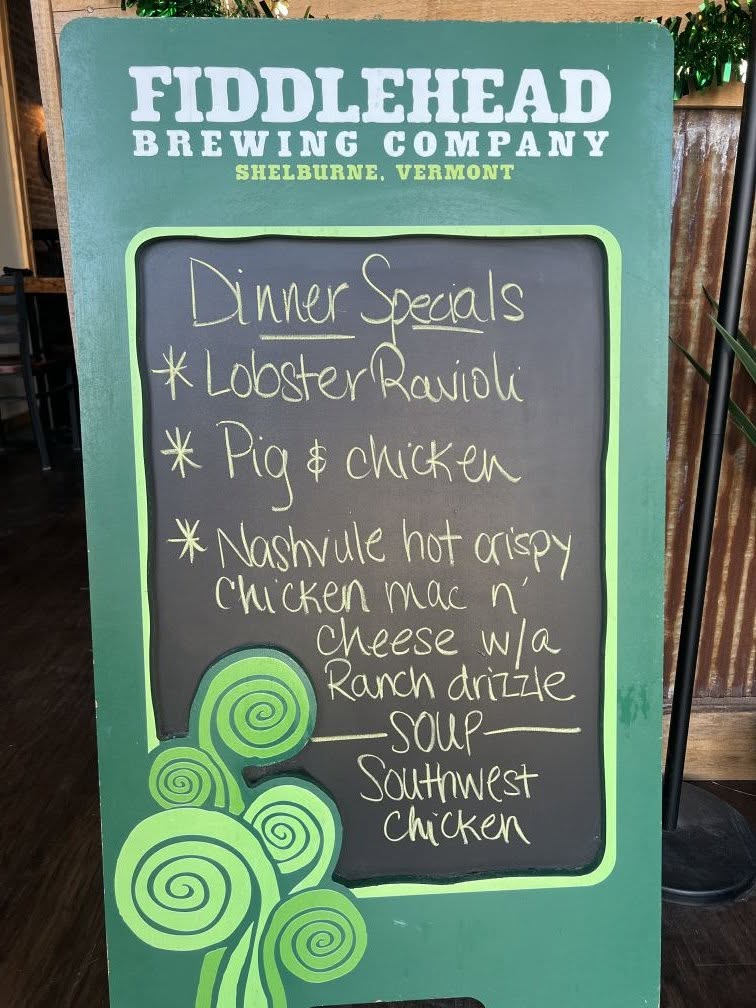 FIDDLEHEAD
BREWING COMPANY
SHELBURNE, VERMONT
Dinner Specials
* Lobster Ravioli
* Pig & chicken
* Nashville hot crispy
chicken mac n'
cheese w/a
Ranch drizzle
SOUP
Southwest
chicken